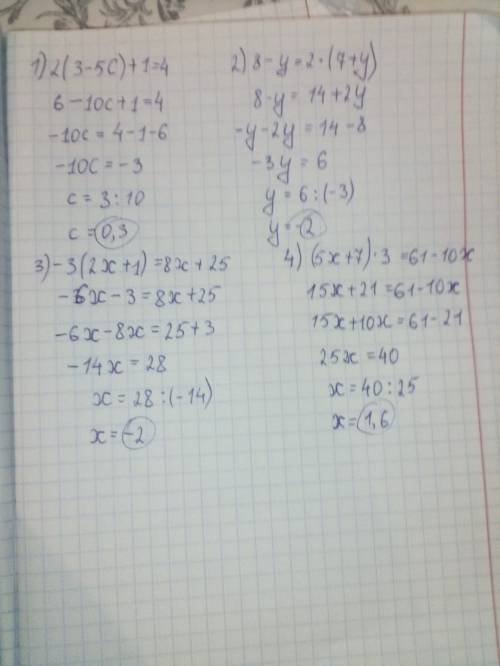 1) 2(3-5c)+1=4
6-10c+1=4
-10c = 4-1-6
-10c = -3
c = 3 : 10
c = 0,3
2) 8-y=2·(7+y)
8-y = 14+2y
-y-2y = 14-8
-3y = 6
y = 6 : (-3)
y = -2
3) -3(2x+1)=8x+25
-6x-3=8x+25
-6x-8x=25+3
-14x = 28
x = 28 : (-14)
x = -2
4) (5x+7)·3=61-10x
15x+21=61-10x
15x+10x=61-21
25x = 40
x = 40 : 25
x = 1,6